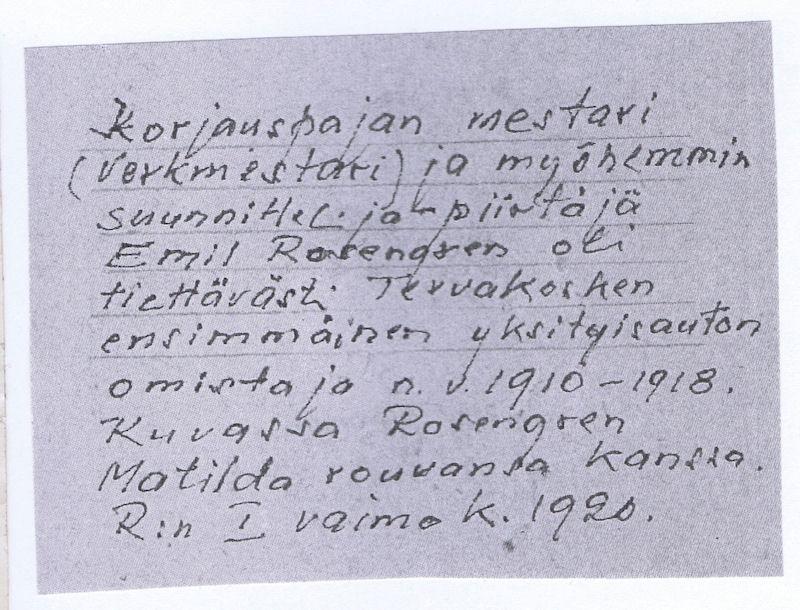 Korjauspajan mestari
(verkmestari) ja myöhemmin
suunnitteli-ja-piirtäjä
Emil Rosengren oli
tiettävästi Tervakosken
ensimmäinen yksityisauton
omistaja n. v. 1910-1918.
Kuvassa Rosengren
Matilda rouvansa kanssa.
R:n I vaimo k. 1920.